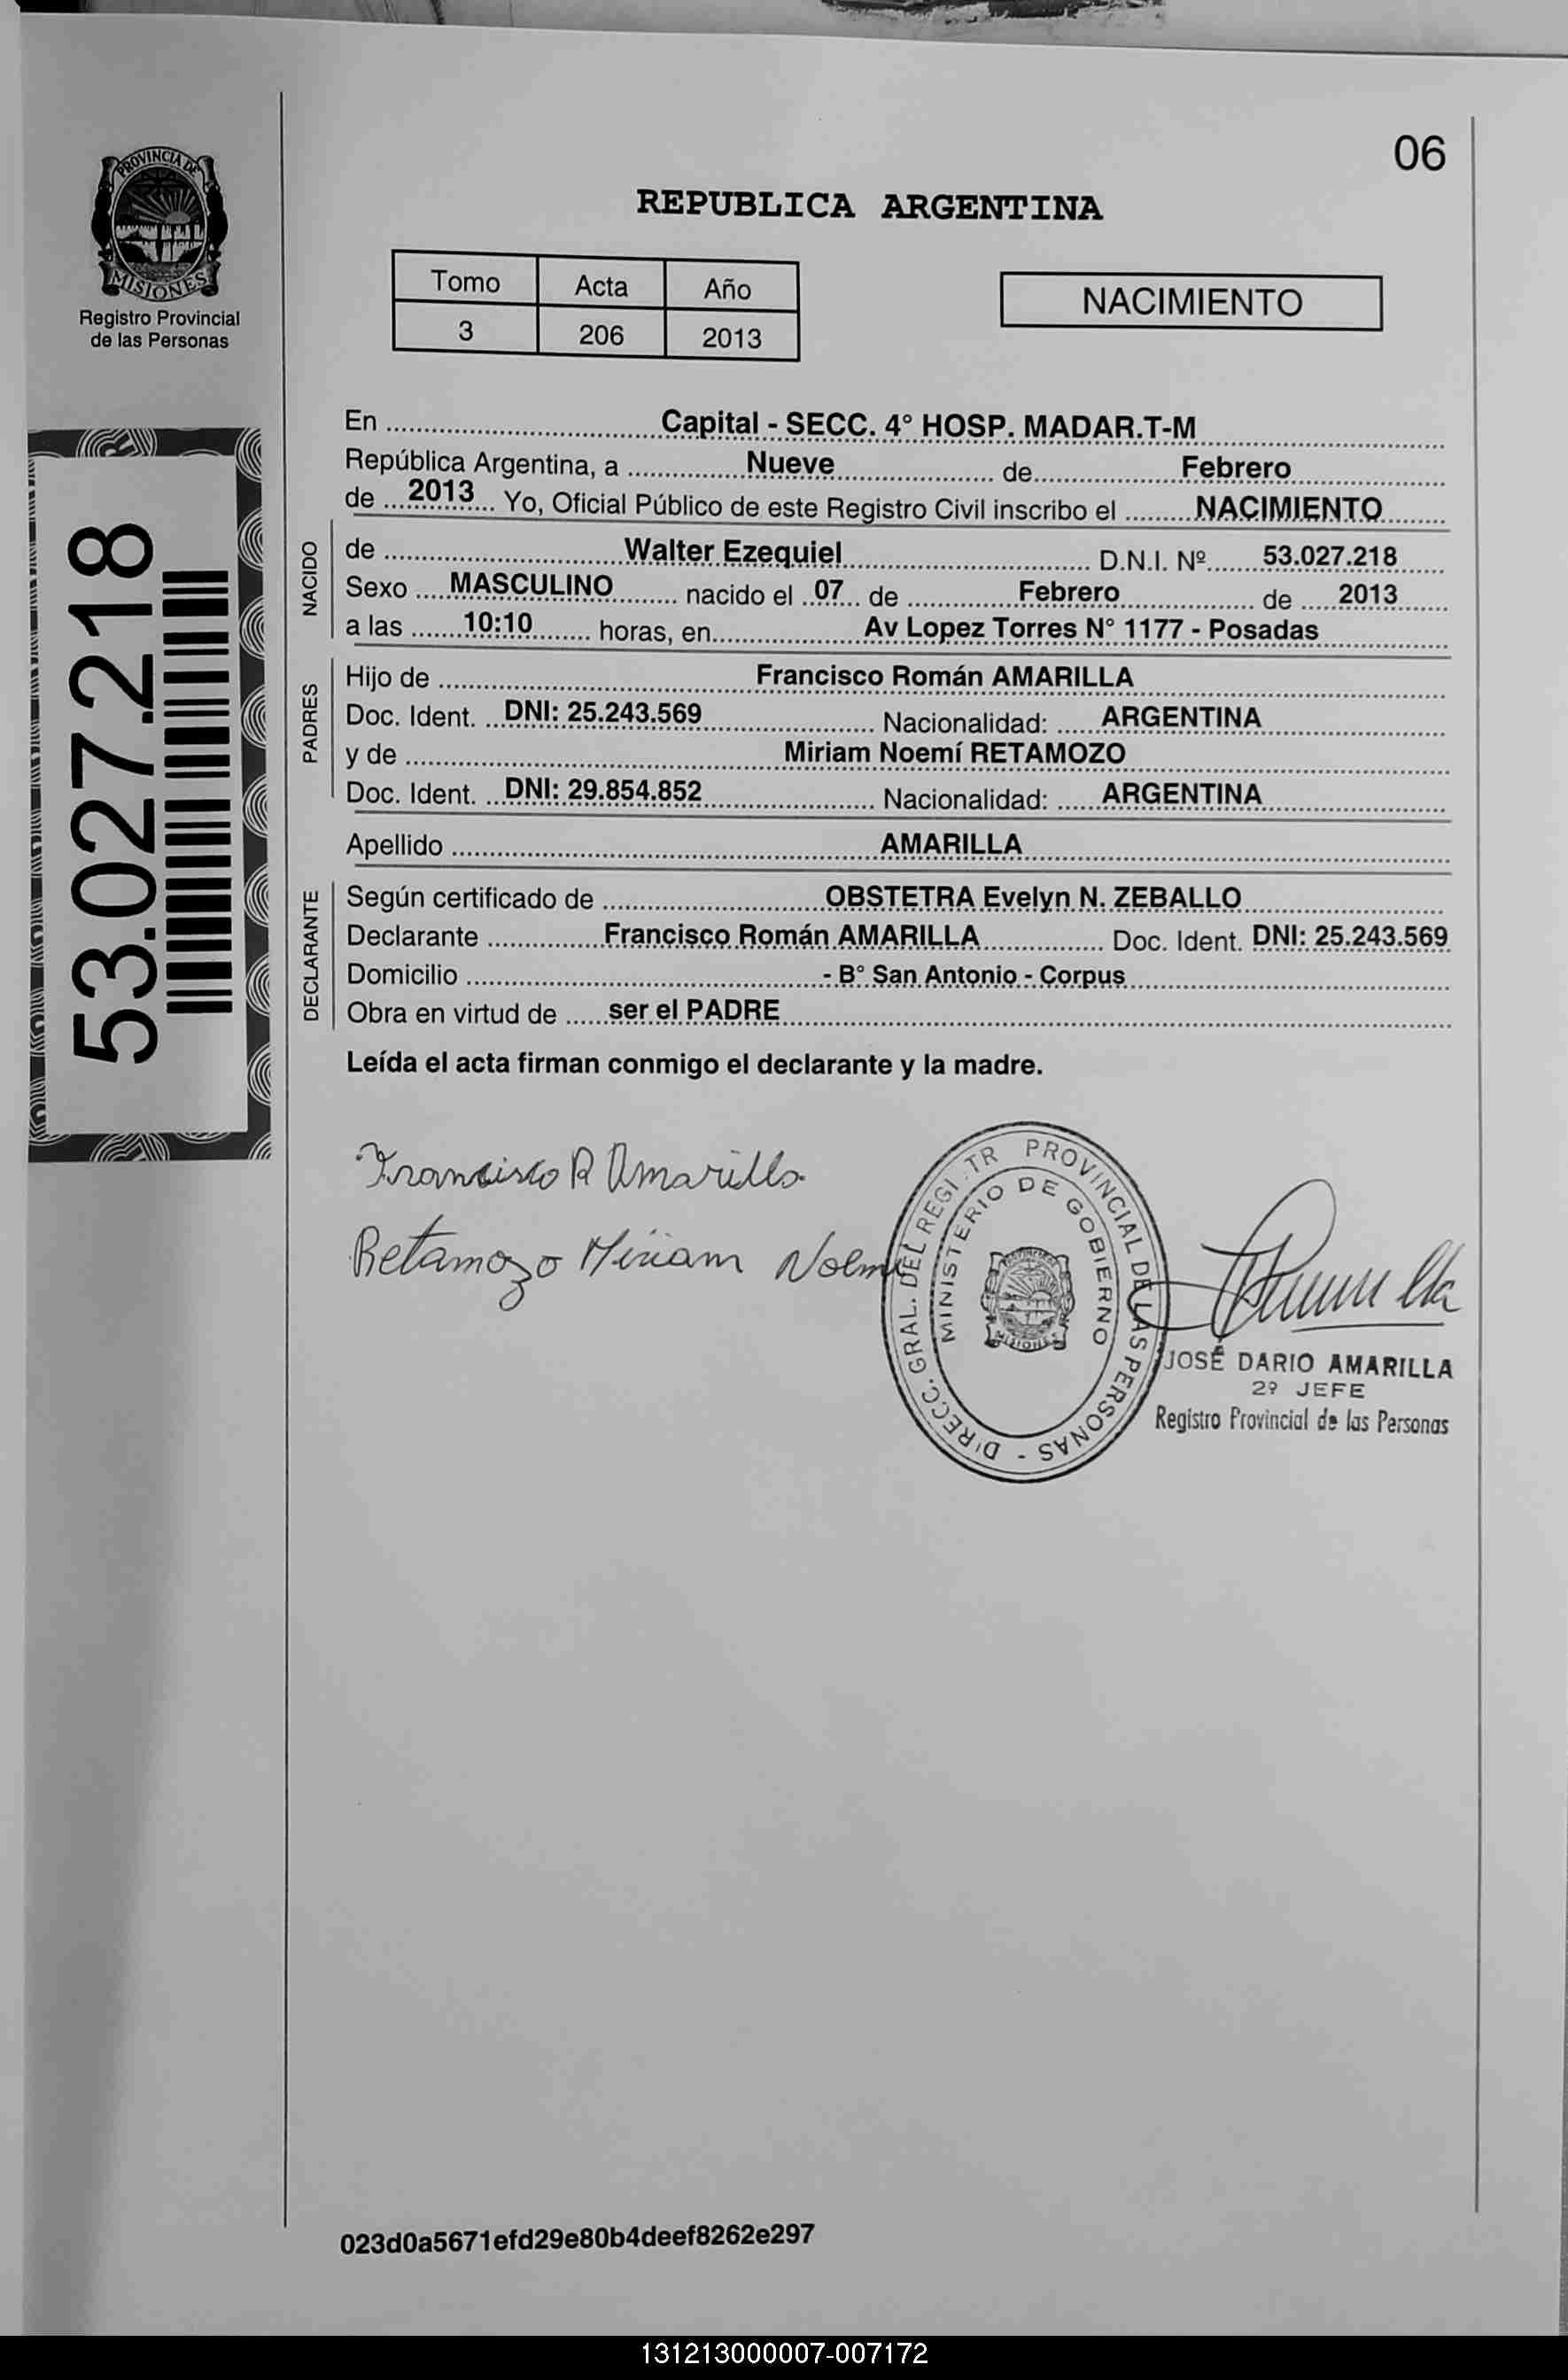 06
PROVINCIA DE
MISIONES
Registro Provincial
de las Personas
REPUBLICA ARGENTINA
Tomo Acta Año
3 206 2013
NACIMIENTO
53.027.218
En Capital - SECC. 4° HOSP. MADAR.T-M
República Argentina, a Nueve de Febrero
de 2013 Yo, Oficial Público de este Registro Civil inscribo el NACIMIENTO
NACIDO
de Walter Ezequiel D.N.I. Nº 53.027.218
Sexo MASCULINO nacido el 07 de Febrero de 2013
a las 10:10 horas, en Av Lopez Torres N° 1177 - Posadas
PADRES
Hijo de Francisco Román AMARILLA
Doc. Ident. DNI: 25.243.569 Nacionalidad: ARGENTINA
y de Miriam Noemí RETAMOZO
Doc. Ident. DNI: 29.854.852 Nacionalidad: ARGENTINA
Apellido AMARILLA
DECLARANTE
Según certificado de OBSTETRA Evelyn N. ZEBALLO
Declarante Francisco Román AMARILLA Doc. Ident. DNI: 25.243.569
Domicilio - B° San Antonio - Corpus
Obra en virtud de ser el PADRE
Leída el acta firman conmigo el declarante y la madre.
Francisco R Amarilla
Retamozo Miriam Noemi
DIRECC. GRAL. DEL REGI TR PROVINCIAL DE LAS PERSONAS -
MINISTERIO DE GOBIERNO
MISIONES
JOSÉ DARIO AMARILLA
2º JEFE
Registro Provincial de las Personas
023d0a5671efd29e80b4deef8262e297
131213000007-007172